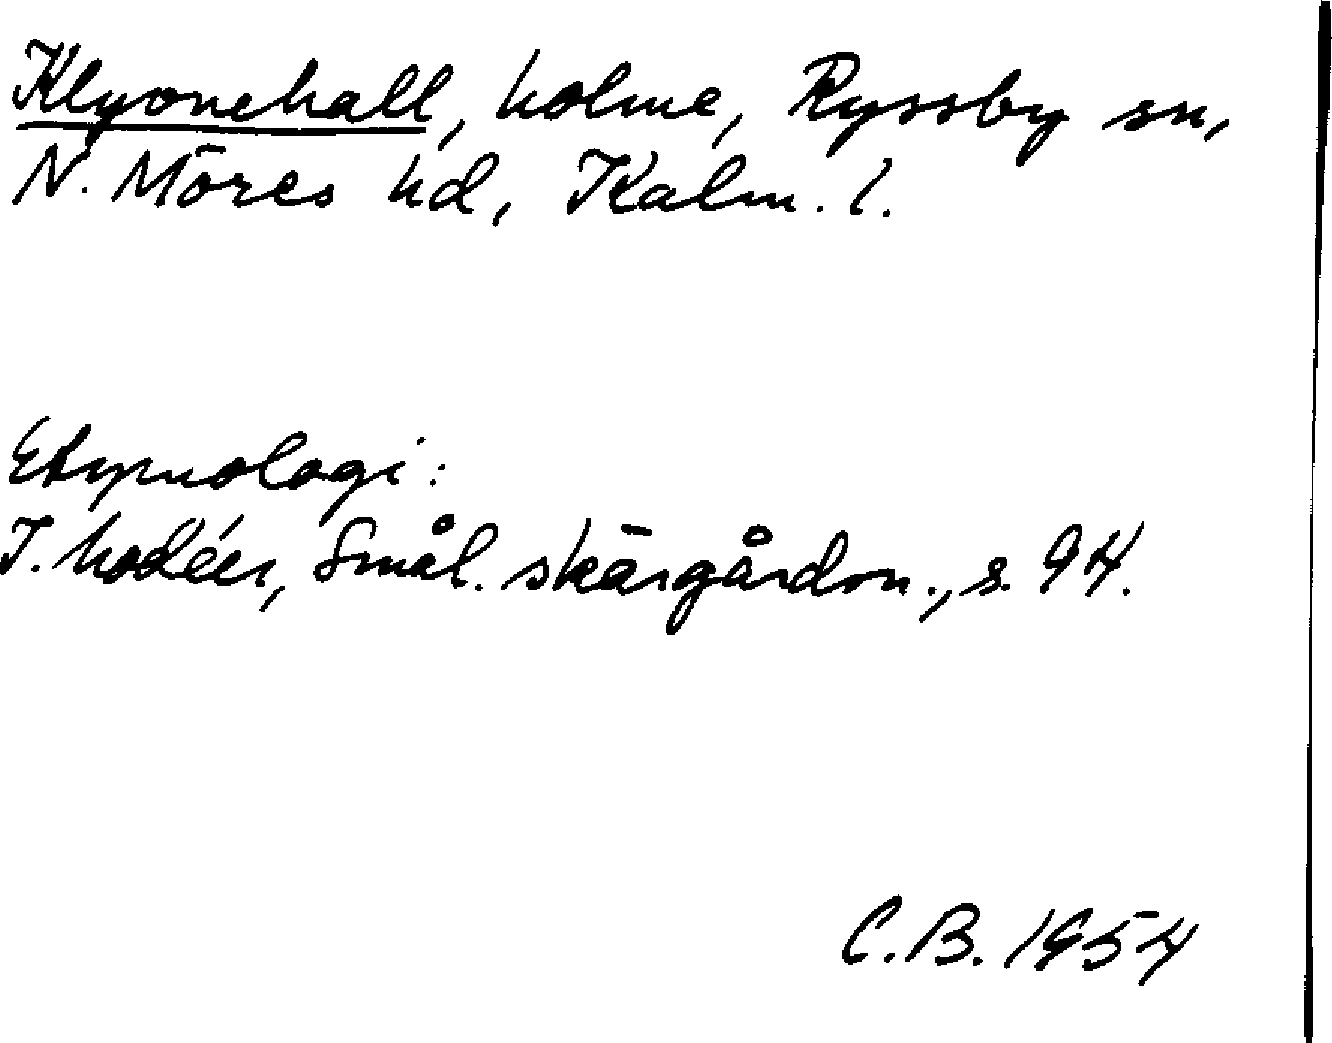 Klyvnehall, holme, Ryssby sn,
N. Möres hd, Kalm. l.
Etymologi:
I. Modéer, Smål. skärgårdsn., s. 94.
C.B. 1954